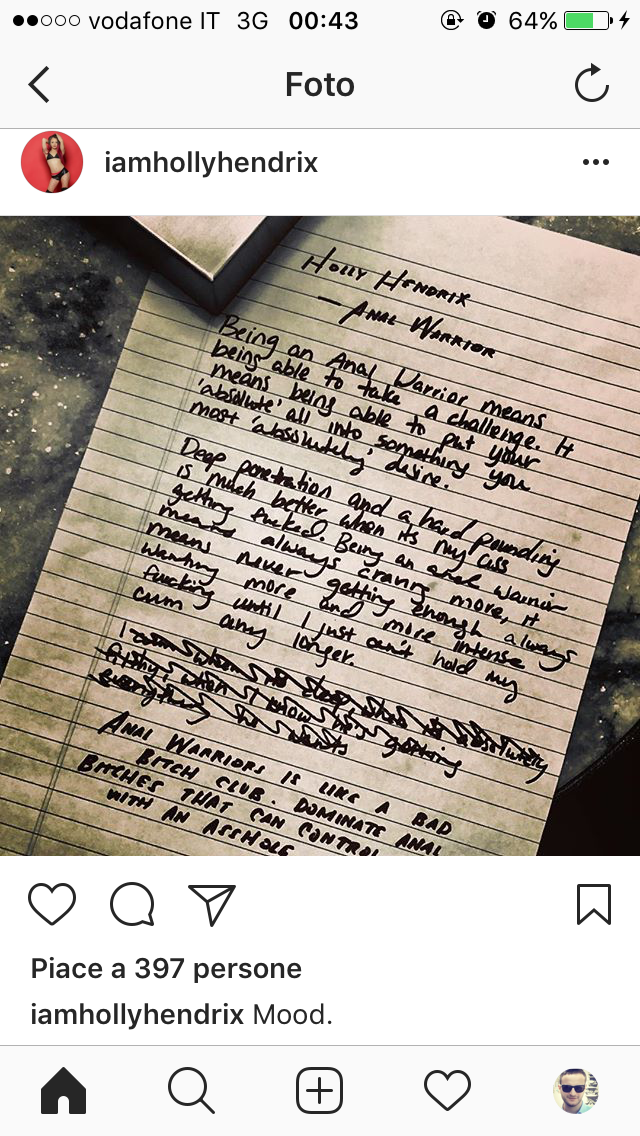 vodafone IT 3G 00:43 64%
Foto
iamhollyhendrix
HOLLY HENDRIX
— ANAL WARRIOR
Being an Anal Warrior means
being able to take a challenge. It
means being able to put your
'absolute' all into something you
most 'absolutely' desire.
Deep penetration and a hard pounding
is much better when its my ass
getting fucked. Being an anal warrior
means always craving more, it
means never getting enough always
wanting more and more intense
fucking until I just can't hold my
cum any longer.
ANAL WARRIORS IS LIKE A BAD
BITCH CLUB. DOMINATE ANAL
BITCHES THAT CAN CONTROL
WITH AN ASSHOLE
Piace a 397 persone
iamhollyhendrix Mood.